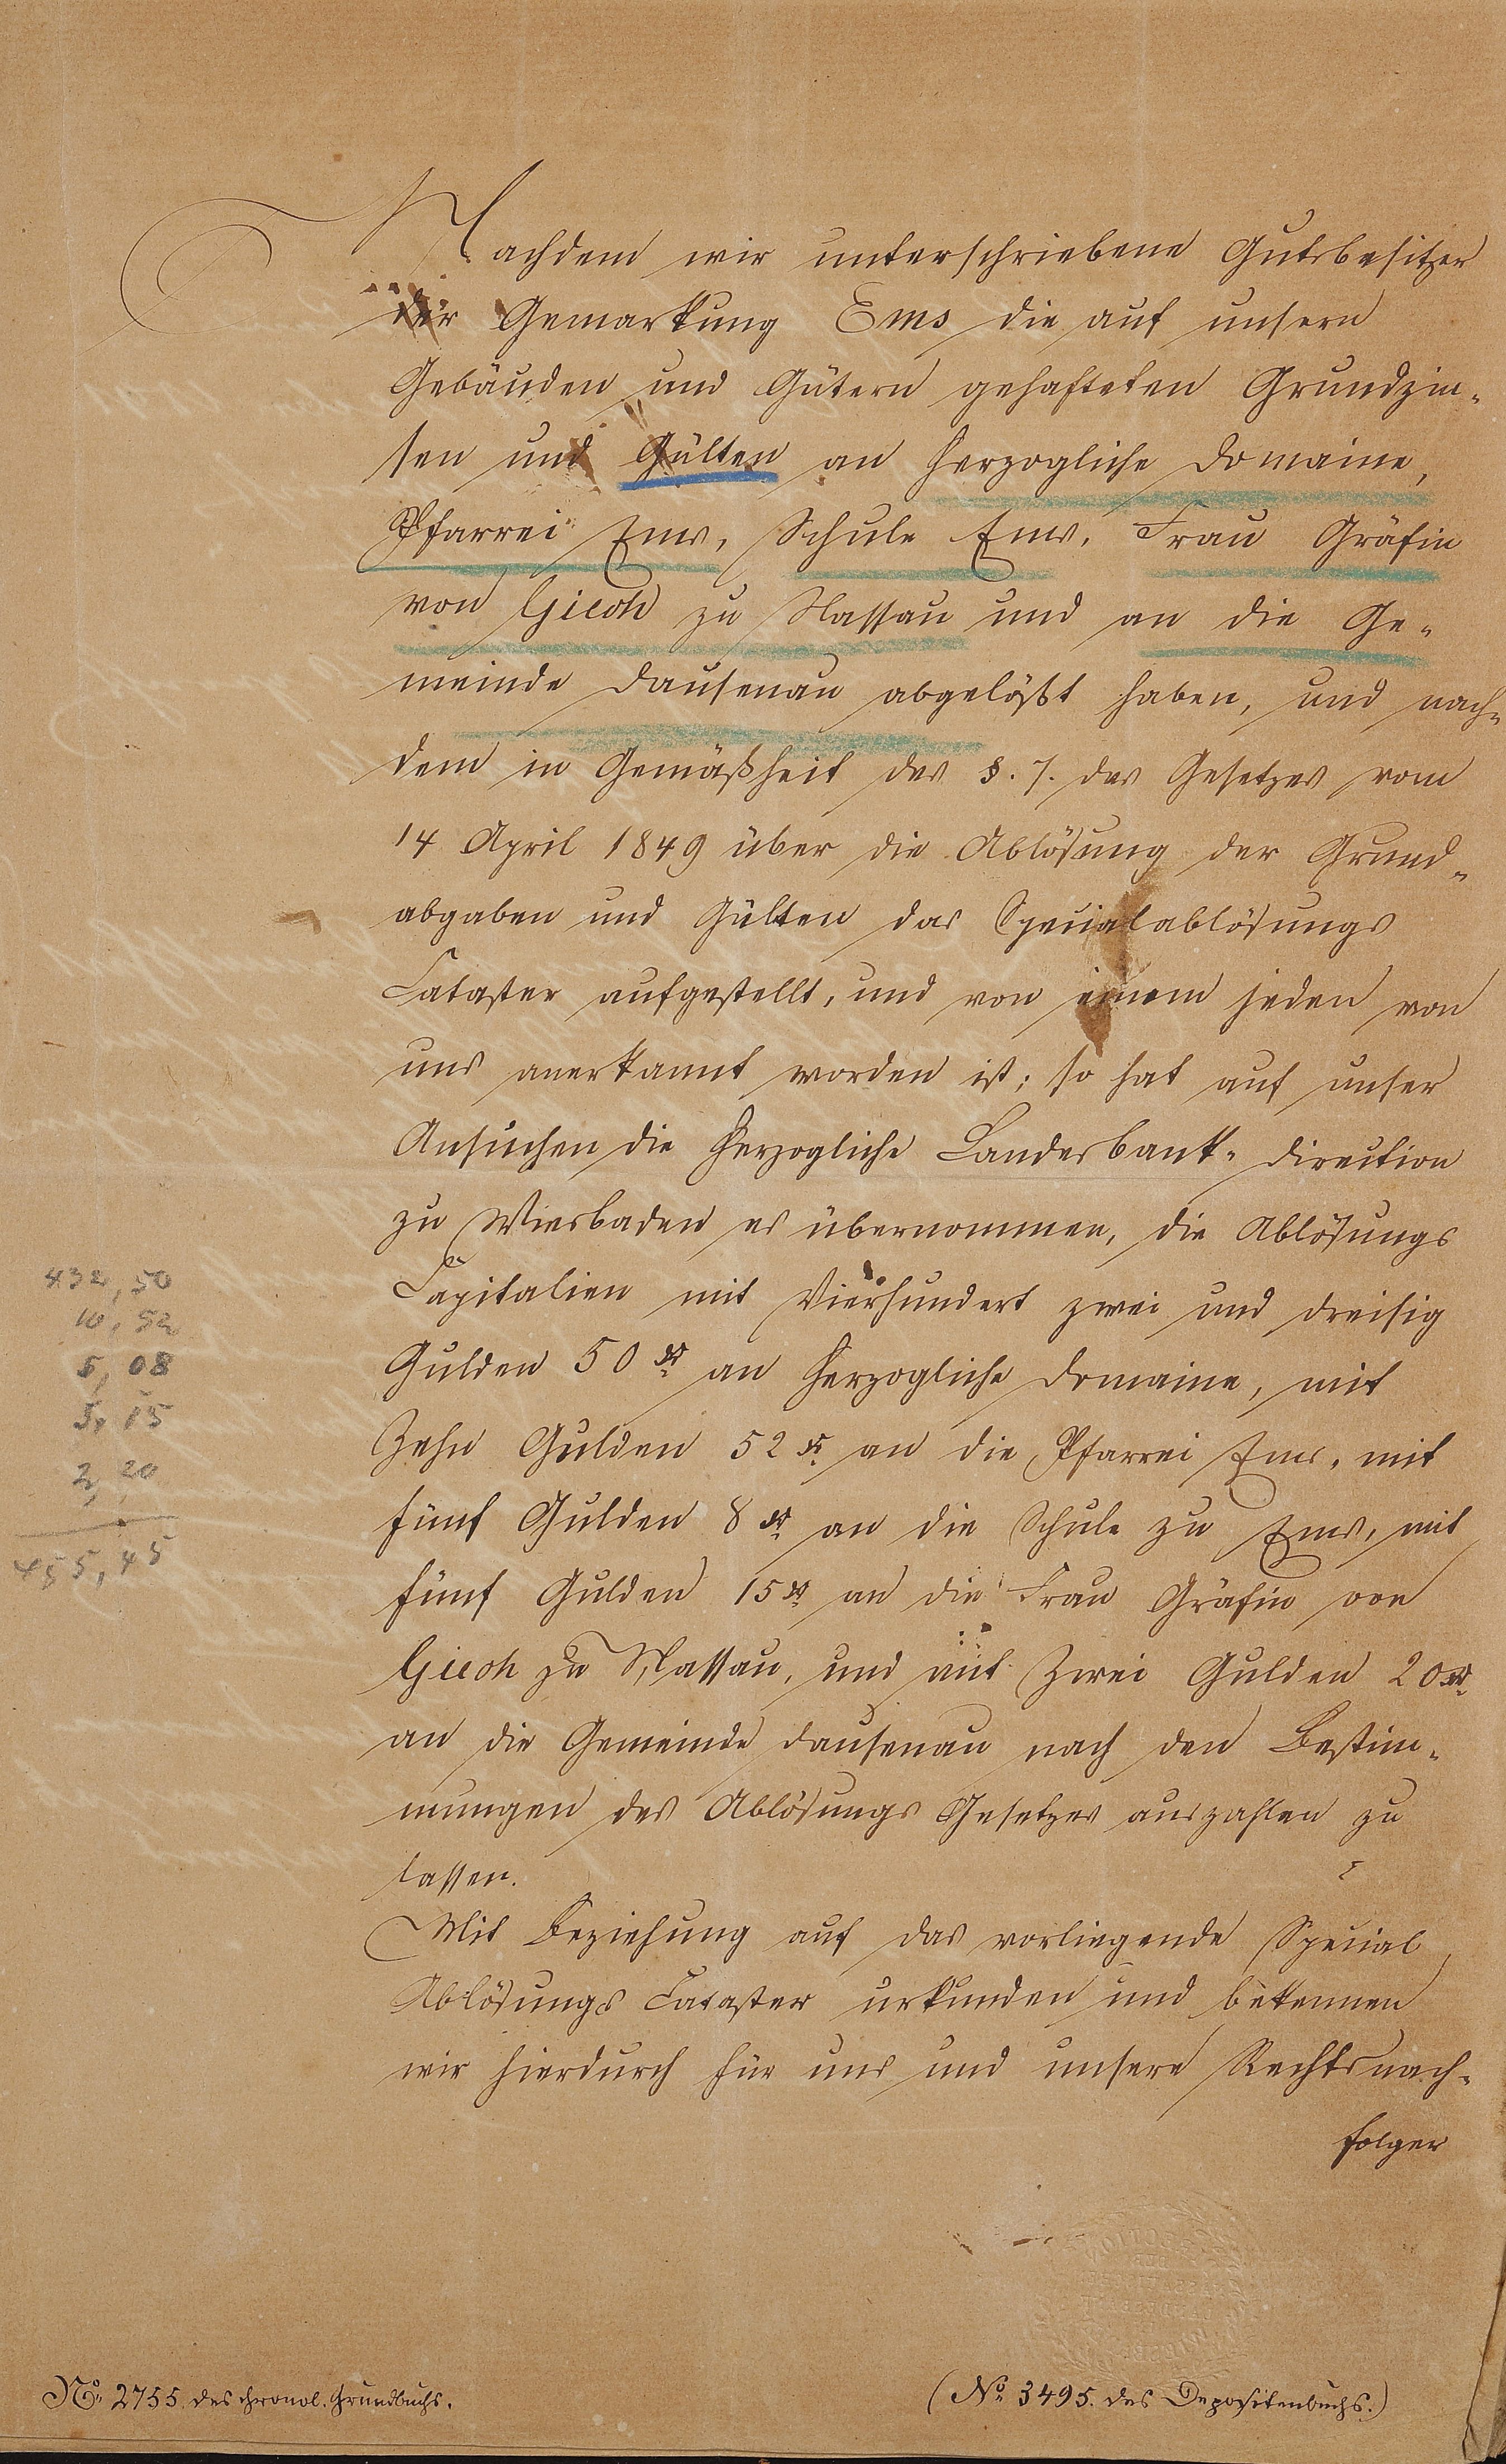 Nachdem wir unterschriebene Gutsbesitzer
der Gemarkung Ems die auf unsern
Gebäuden und Gütern gehafteten Grundzin-
sen und Gülten an Herzogliche Domaine,
Pfarrei Ems, Schule Ems, Frau Gräfin
von Giech zu Nassau und an die Ge-
meinde Dausenau abgelößt haben, und nach-
dem in Gemäßheit des §. 7. des Gesetzes vom
14 April 1849 über die Ablösung der Grund-
abgaben und Gülten das Specialablösungs
Cataster aufgestellt, und von einem jeden von
uns anerkannt worden ist; so hat auf unser
Ansuchen die Herzogliche Landesbank-Direction
zu Wiesbaden es übernommen, die Ablösungs
Capitalien mit Vierhundert zwei und dreisig
432,50
Gulden 50 xr an Herzogliche Domaine, mit
10,52
Zehn Gulden 52 xr an die Pfarrei Ems, mit
5,08
fünf Gulden 8 xr an die Schule zu Ems, mit
5,15
fünf Gulden 15 xr an die Frau Gräfin von
2,20
Giech zu Nassau, und mit Zwei Gulden 20 xr
455,45
an die Gemeinde Dausenau nach den Bestim-
mungen des Ablösungs Gesetzes auszahlen zu
lassen.
Mit Beziehung auf das vorliegende Special
Ablösungs Cataster urkunden und bekennen
wir hierdurch für uns und unsere Rechtsnach-
folger
No. 2755. des chronol. Grundbuchs.
(No. 3495. des Depositenbuchs.)